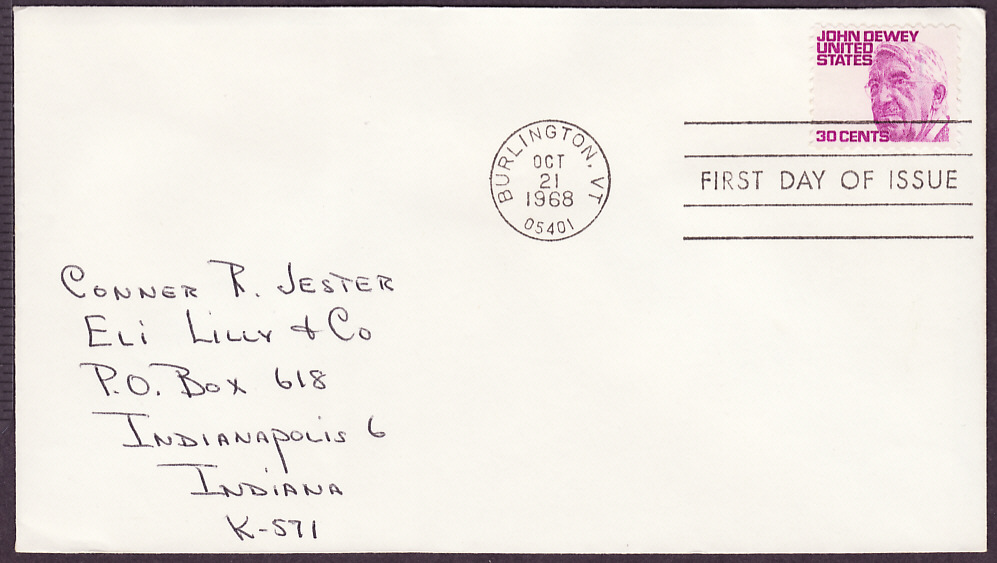 JOHN DEWEY
UNITED
STATES
30 CENTS
BURLINGTON, VT
OCT
21
1968
05401
FIRST DAY OF ISSUE
CONNER R. JESTER
ELi LILLY & CO
P.O. BOX 618
INDIANAPOLIS 6
INDIANA
K-571